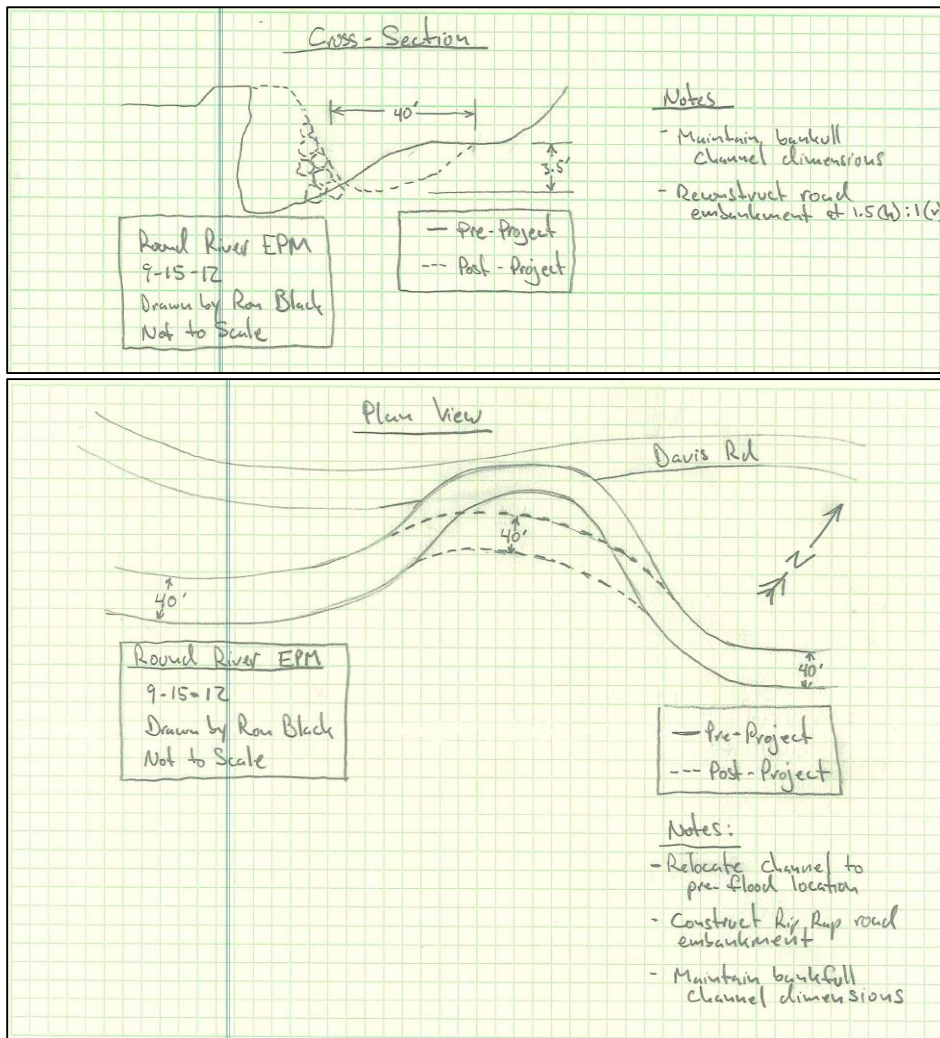 Cross-Section
40'
3.5'
Notes
- Maintain bankull
channel dimensions
- Reconstruct road
embankment at 1.5(h):1(v)
Round River EPM
9-15-12
Drawn by Ron Black
Not to Scale
— Pre-Project
--- Post-Project
Plan View
Davis Rd
40'
N
40'
40'
Round River EPM
9-15-12
Drawn by Ron Black
Not to Scale
— Pre-Project
--- Post-Project
Notes:
- Relocate channel to
pre-flood location
- Construct Rip Rap road
embankment
- Maintain bankfull
channel dimensions